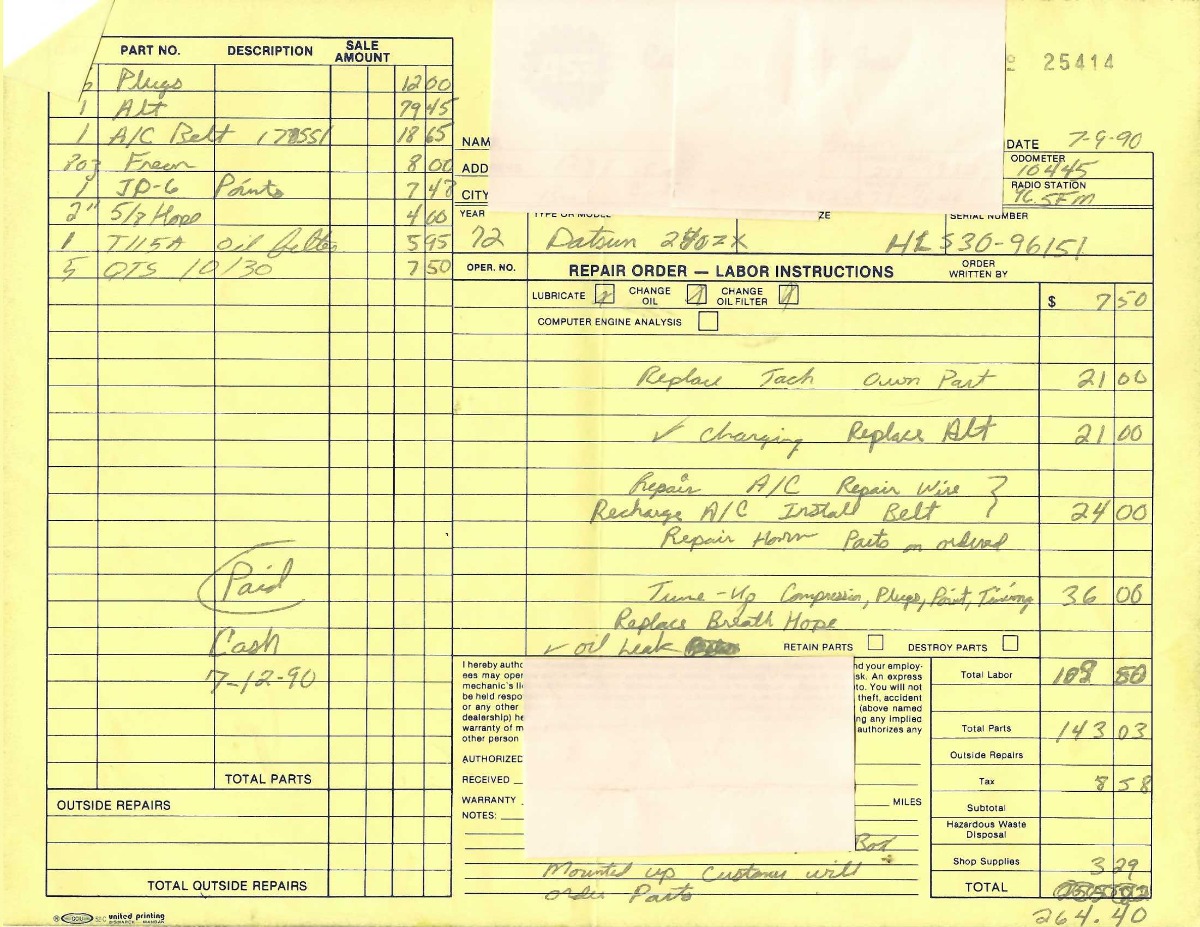 25414
PART NO. DESCRIPTION SALE AMOUNT
Plugs 12 00
1 Alt 79 45
1 A/C Belt 18 65
8oz Freon 8 00
1 JD-6 Points 7 48
2" 5/8 Hose 4 00
1 T115A Oil filter 5 95
5 QTS 10/30 7 50
Paid
Cash
7-12-90
TOTAL PARTS
OUTSIDE REPAIRS
TOTAL OUTSIDE REPAIRS
united printing
BISMARCK MANDAN
NAM
DATE 7-9-90
ADD
ODOMETER 10445
CITY
RADIO STATION 96.5 FM
YEAR TYPE OR MODEL ZE SERIAL NUMBER
72 Datsun 240zx HLS30-96151
OPER. NO. REPAIR ORDER — LABOR INSTRUCTIONS ORDER WRITTEN BY
LUBRICATE CHANGE OIL CHANGE OIL FILTER $ 7 50
COMPUTER ENGINE ANALYSIS
Replace Tach Own Part 21 00
✓ Charging Replace Alt 21 00
Repair A/C Repair Wire
Recharge A/C Install Belt 24 00
Repair Horn Parts on ordered
Tune-Up Compression, Plugs, Point, Timing 36 00
Replace Breath Hope
✓ oil Leak RETAIN PARTS DESTROY PARTS
I hereby autho nd your employ-
ees may oper sk. An express
mechanic's li to. You will not
be held respo theft, accident
or any other (above named
dealership) he ng any implied
warranty of m authorizes any
other person
AUTHORIZED
RECEIVED
WARRANTY MILES
NOTES:
Mounted up Customer will
order Parts
Total Labor
Total Parts 143 03
Outside Repairs
Tax 8 58
Subtotal
Hazardous Waste Disposal
Shop Supplies 3 29
TOTAL
264.40